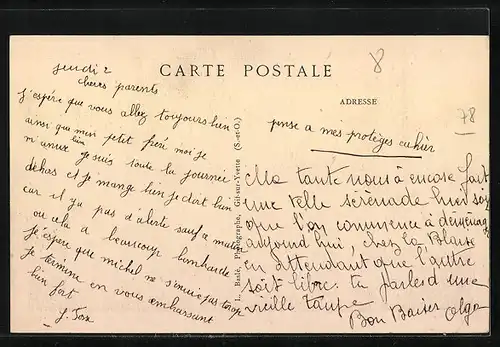 CARTE POSTALE
ADRESSE
8
78
jeudi 2
chers parents
j'espére que vous allez toujours bien
ainsi que mesi petit frére moi je
m'amuse bien je suis toute la journeé
dehors et je mange bien je dort bien
car il y a pas d'alerte sauf a matin
ou cela a beaucoup bombardé
je espere que michel ne s'ennuie pas trop
je termine en vous embrassant
bien fort
pense a mes protèges cahier
Ma tante nous à encore fait
une telle sérénade hier soir
que l'on commence à déménag
aujourd'hui, chez la Blaise
en attendant que l'autre
soit libre. tu parles d'une
vieille taupe
Bon Baiser Olga
L. Baslé, Photographe, Gif-sur-Yvette (S.-et-O.)